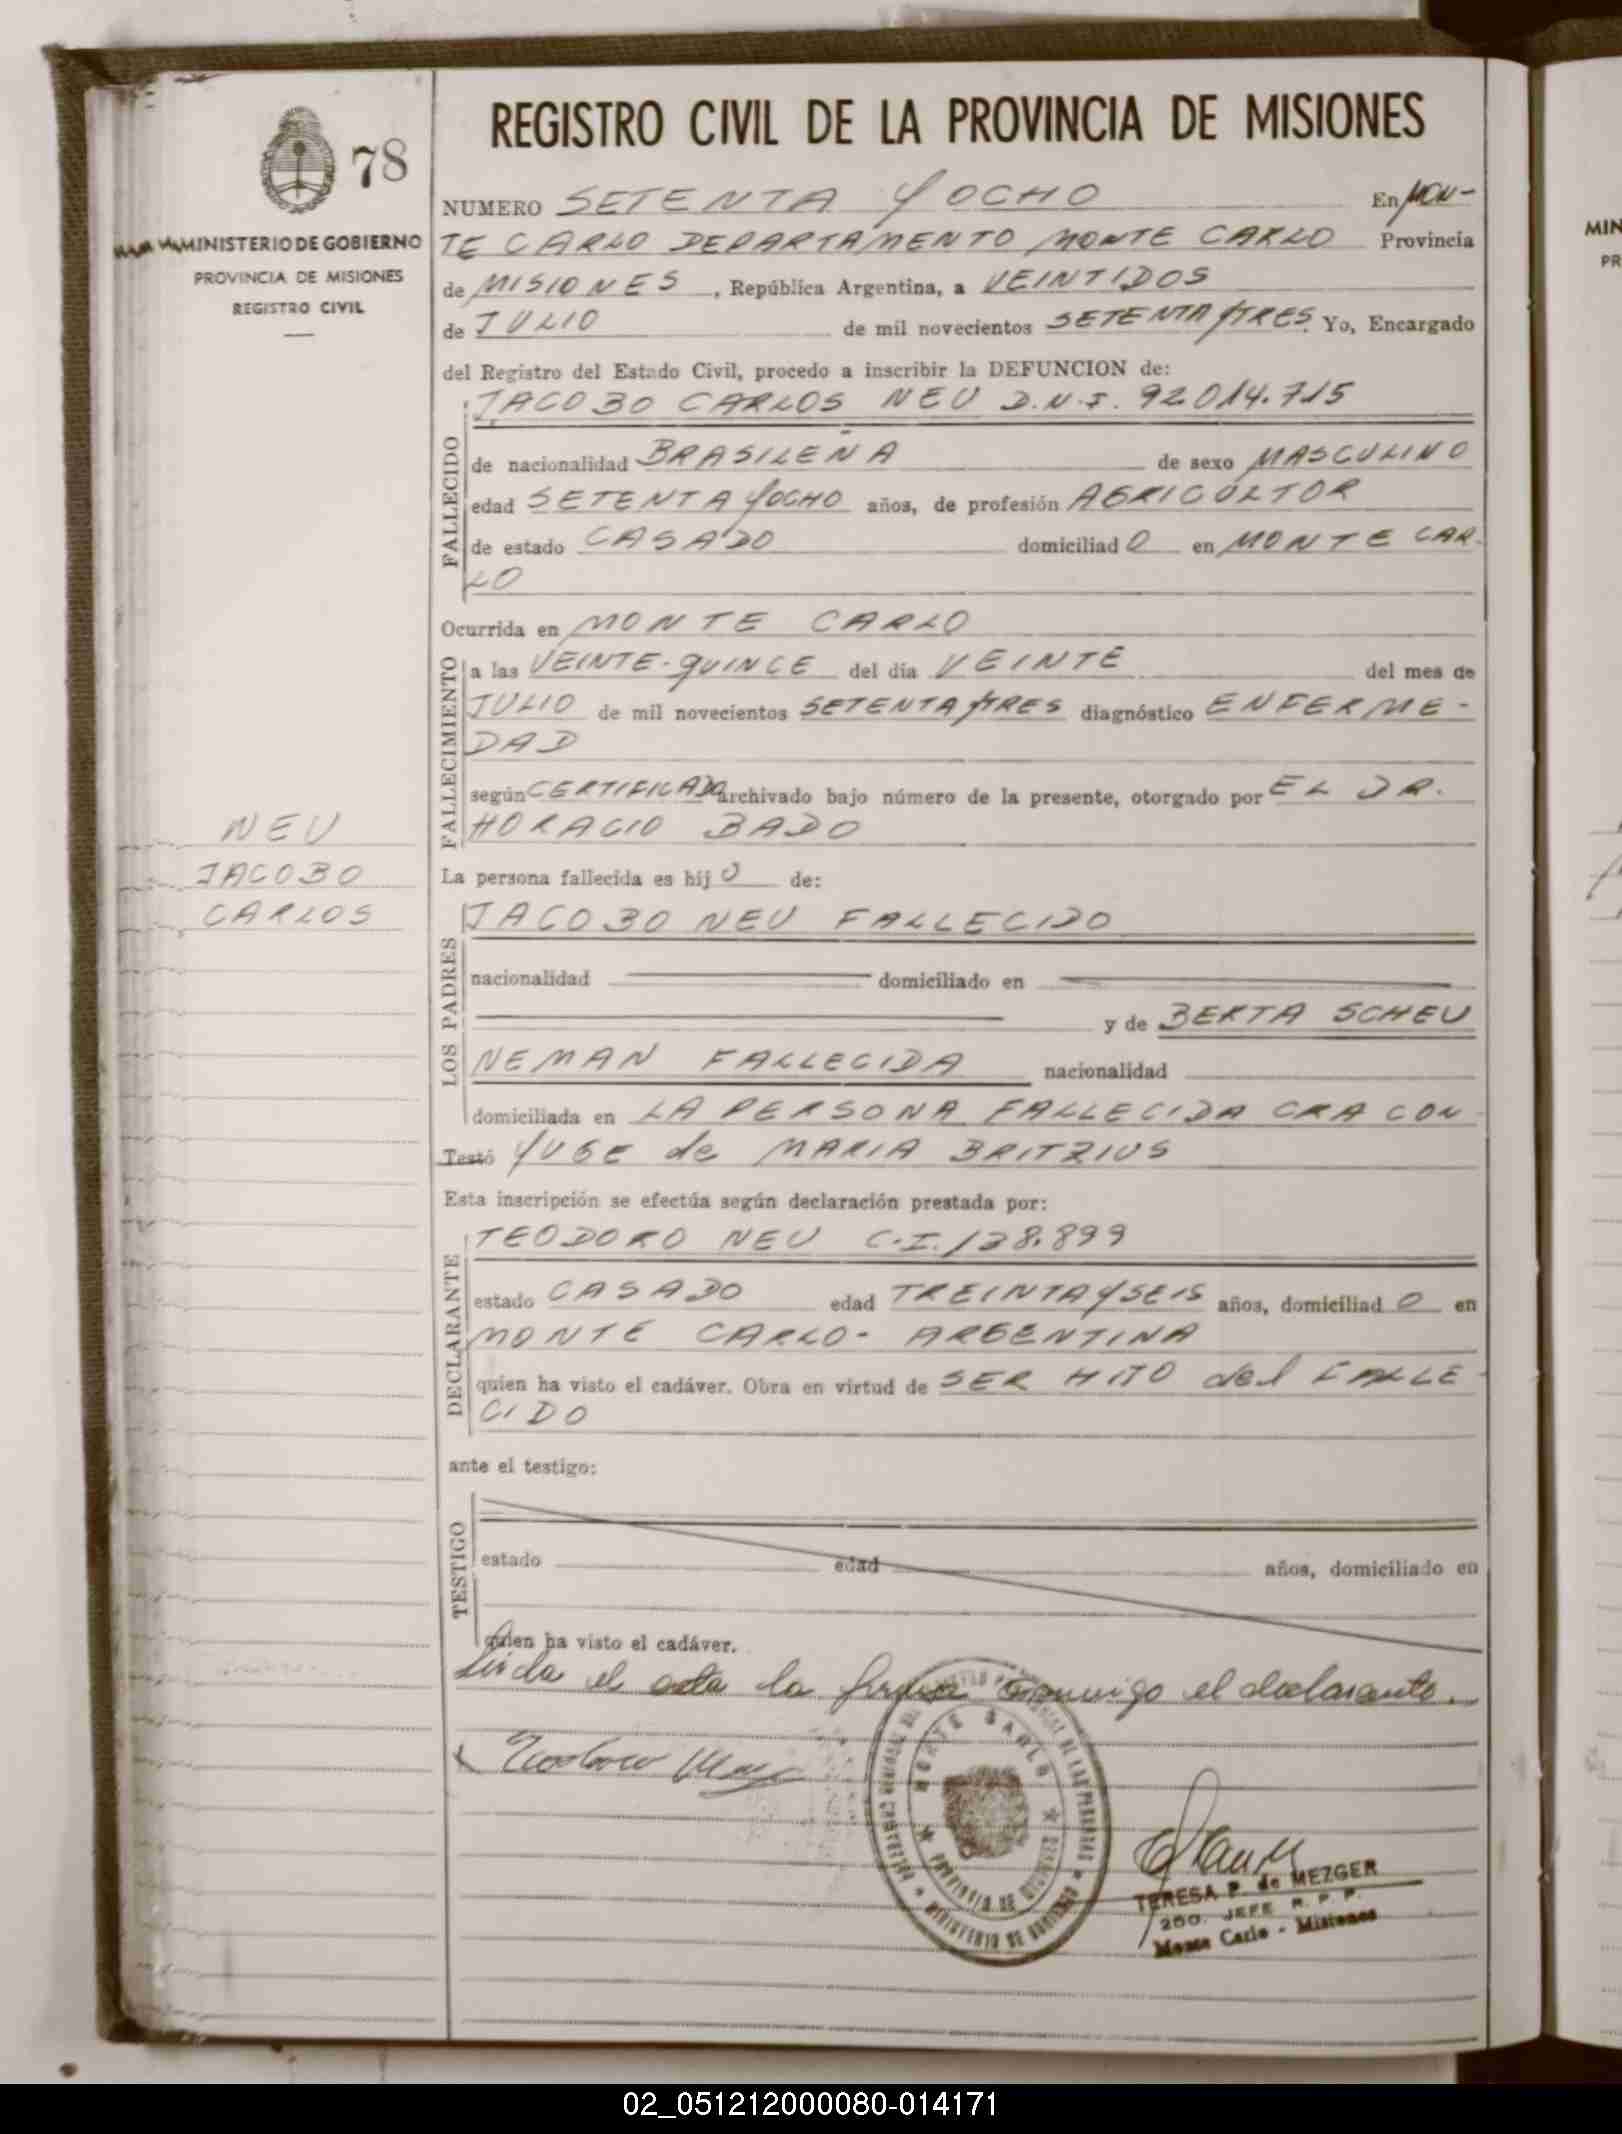 REGISTRO CIVIL DE LA PROVINCIA DE MISIONES
78
MINISTERIO DE GOBIERNO
PROVINCIA DE MISIONES
REGISTRO CIVIL
NUMERO SETENTA Y OCHO En MON-
TE CARLO DEPARTAMENTO MONTE CARLO Provincia
de MISIONES, República Argentina, a VEINTIDOS
de JULIO de mil novecientos SETENTA Y TRES Yo, Encargado
del Registro del Estado Civil, procedo a inscribir la DEFUNCION de:
FALLECIDO
JACOBO CARLOS NEU D.N.I. 92.014.715
de nacionalidad BRASILEÑA de sexo MASCULINO
edad SETENTA Y OCHO años, de profesión AGRICULTOR
de estado CASADO domiciliad O en MONTE CAR-
LO
Ocurrida en MONTE CARLO
FALLECIMIENTO
a las VEINTE-QUINCE del día VEINTE del mes de
JULIO de mil novecientos SETENTA Y TRES diagnóstico ENFERME-
DAD
según CERTIFICADO archivado bajo número de la presente, otorgado por EL DR.
HORACIO BADO
NEU
JACOBO
CARLOS
La persona fallecida es hij O de:
LOS PADRES
JACOBO NEU FALLECIDO
nacionalidad domiciliado en
y de BERTA SCHEU
NEMAN FALLECIDA nacionalidad
domiciliada en LA PERSONA FALLECIDA ERA CON-
Testó YUGE de MARIA BRITZIUS
Esta inscripción se efectúa según declaración prestada por:
DECLARANTE
TEODORO NEU C.I. 138.899
estado CASADO edad TREINTA Y SEIS años, domiciliad O en
MONTE CARLO- ARGENTINA
quien ha visto el cadáver. Obra en virtud de SER HIJO del FALLE-
CIDO
ante el testigo:
TESTIGO
estado edad años, domiciliado en
quien ha visto el cadáver.
Leida el acta la firma conmigo el declarante.
Teodoro Neu
MONTE CARLO
PROVINCIA DE MISIONES
MINISTERIO DE GOBIERNO
TERESA P. de MEZGER
2DO. JEFE R. P. P.
Monte Carlo - Misiones
MIN
PR
02_051212000080-014171